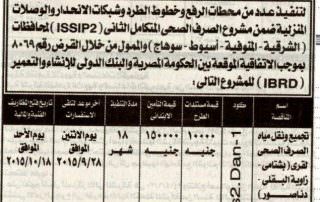 لتنفيذ عدد من محطات الرفع وخطوط الطرد وشبكات الانحدار والوصلات
المنزلية ضمن مشروع الصرف الصحى المتكامل الثانى (ISSIP2) لمحافظات
(الشرقية - المنوفية - أسيوط - سوهاج) والممول من خلال القرض ٨٠٦٩
بموجب الاتفاقية الموقعة بين الحكومة المصرية والبنك الدولى للإنشاء والتعمير
(IBRD) للمشروع التالى:
اسم المناقصة
كود
قيمة مستندات الطرح
قيمة التأمين الابتدائى
مدة التنفيذ
آخر موعد لتلقى الاستفسارات
تاريخ فتح المظاريف الفنية والمالية
تجميع ونقل مياه
الصرف الصحى
لقرى (بشتامى -
زاوية البقلى -
دناصور)
s2.Dan-1
١٠٠٠٠
جنيه
١٥٠٠٠٠
جنيه
١٨
شهر
يوم الاثنين
الموافق
٢٠١٥/٩/٢٨
يوم الأحد
الموافق
٢٠١٥/١٠/١٨